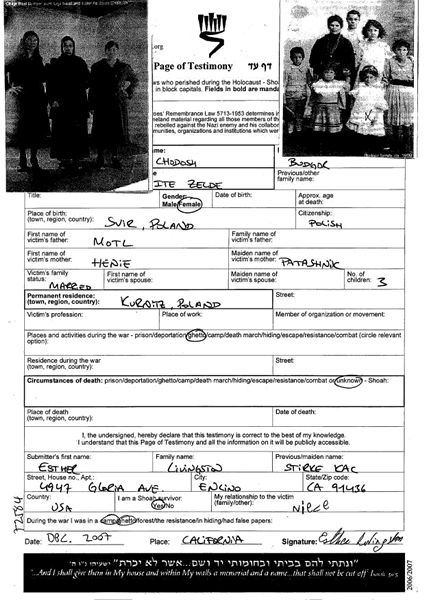 .org
Page of Testimony דף עד
ws who perished during the Holocaust - Shoah
in block capitals. Fields in bold are manda
oes' Remembrance Law 5713-1953 determines in
eland material regarding all those members of the
rebelled against the Nazi enemy and his collabor
munities, organizations and institutions which wer
name:
CHODOSH BUDGOR
ITE ZELDE Previous/other family name:
Title: Gender: Male/Female Date of birth: Approx. age at death:
Place of birth: (town, region, country): SVIR, POLAND Citizenship: POLISH
First name of victim's father: MOTL Family name of victim's father:
First name of victim's mother: HENIE Maiden name of victim's mother: PATASHNIK
Victim's family status: MARRED First name of victim's spouse: Maiden name of victim's spouse: No. of children: 3
Permanent residence: (town, region, country): KURNITZ, POLAND Street:
Victim's profession: Place of work: Member of organization or movement:
Places and activities during the war - prison/deportation/ghetto/camp/death march/hiding/escape/resistance/combat (circle relevant option):
Residence during the war (town, region, country):
Circumstances of death: prison/deportation/ghetto/camp/death march/hiding/escape/resistance/combat or unknown - Shoah:
Place of death (town, region, country): Date of death:
I, the undersigned, hereby declare that this testimony is correct to the best of my knowledge.
I understand that this Page of Testimony and all the information on it will be publicly accessible.
Submitter's first name: ESTHER Family name: LIVINGSTON Previous/maiden name: STIRKE KAC
Street, House no., Apt.: 4947 GLORIA AVE. City: ENCINO State/Zip code: CA 91436
Country: USA I am a Shoah survivor: Yes/No My relationship to the victim (family/other): NIECE
During the war I was in a camp/ghetto/forest/the resistance/in hiding/had false papers:
Date: DEC. 2007 Place: CALIFORNIA Signature: Esther Livingston
72584
"ונתתי להם בביתי ובחומותי יד ושם...אשר לא יכרת" ישעיהו נ"ו ה'
"...And I shall give them in My house and within My walls a memorial and a name...that shall not be cut off" Isaiah 56:5
2006/2007